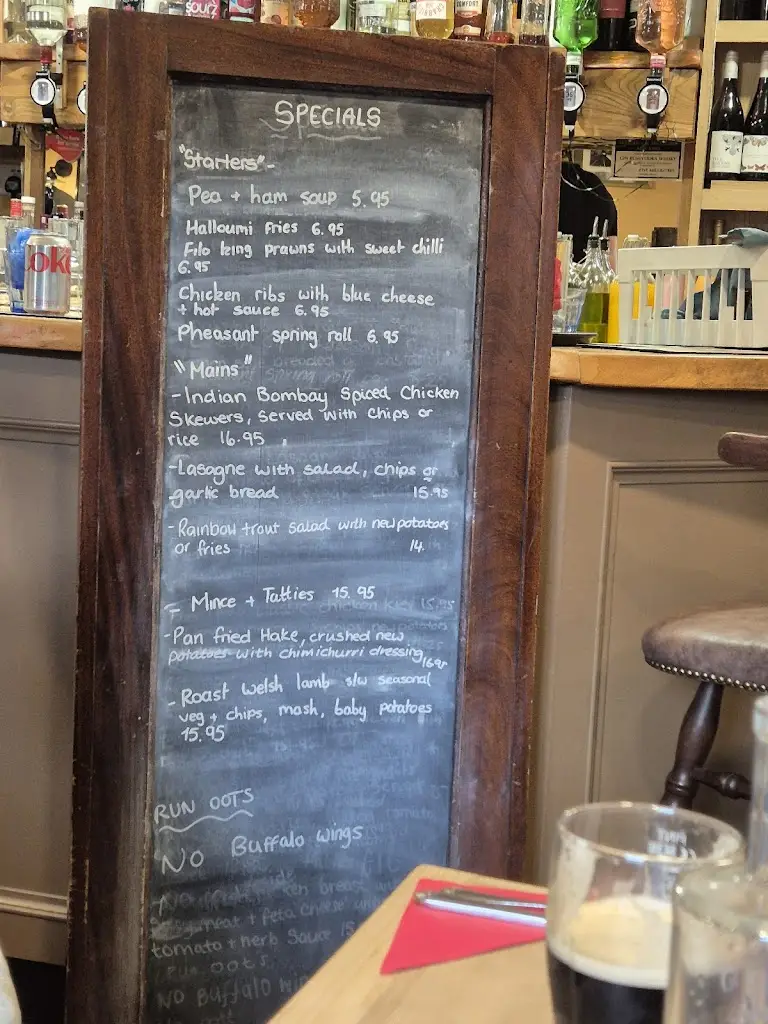 SPECIALS
"Starters"-
Pea + ham soup 5.95
Halloumi fries 6.95
Filo king prawns with sweet chilli
6.95
Chicken ribs with blue cheese
+ hot sauce 6.95
Pheasant spring roll 6.95
"Mains"
-Indian Bombay Spiced Chicken
Skewers, served with chips or
rice 16.95
-Lasagne with salad, chips or
garlic bread 15.95
-Rainbow trout salad with new potatoes
or fries 14.
- Mince + Tatties 15.95
-Pan fried Hake, crushed new
potatoes with chimichurri dressing 16.95
-Roast welsh lamb s/w seasonal
veg + chips, mash, baby potatoes
15.95
RUN OOTS
NO Buffalo wings
meat + feta cheese
tomato + herb sauce 15
run oots
NO Buffalo win
oke